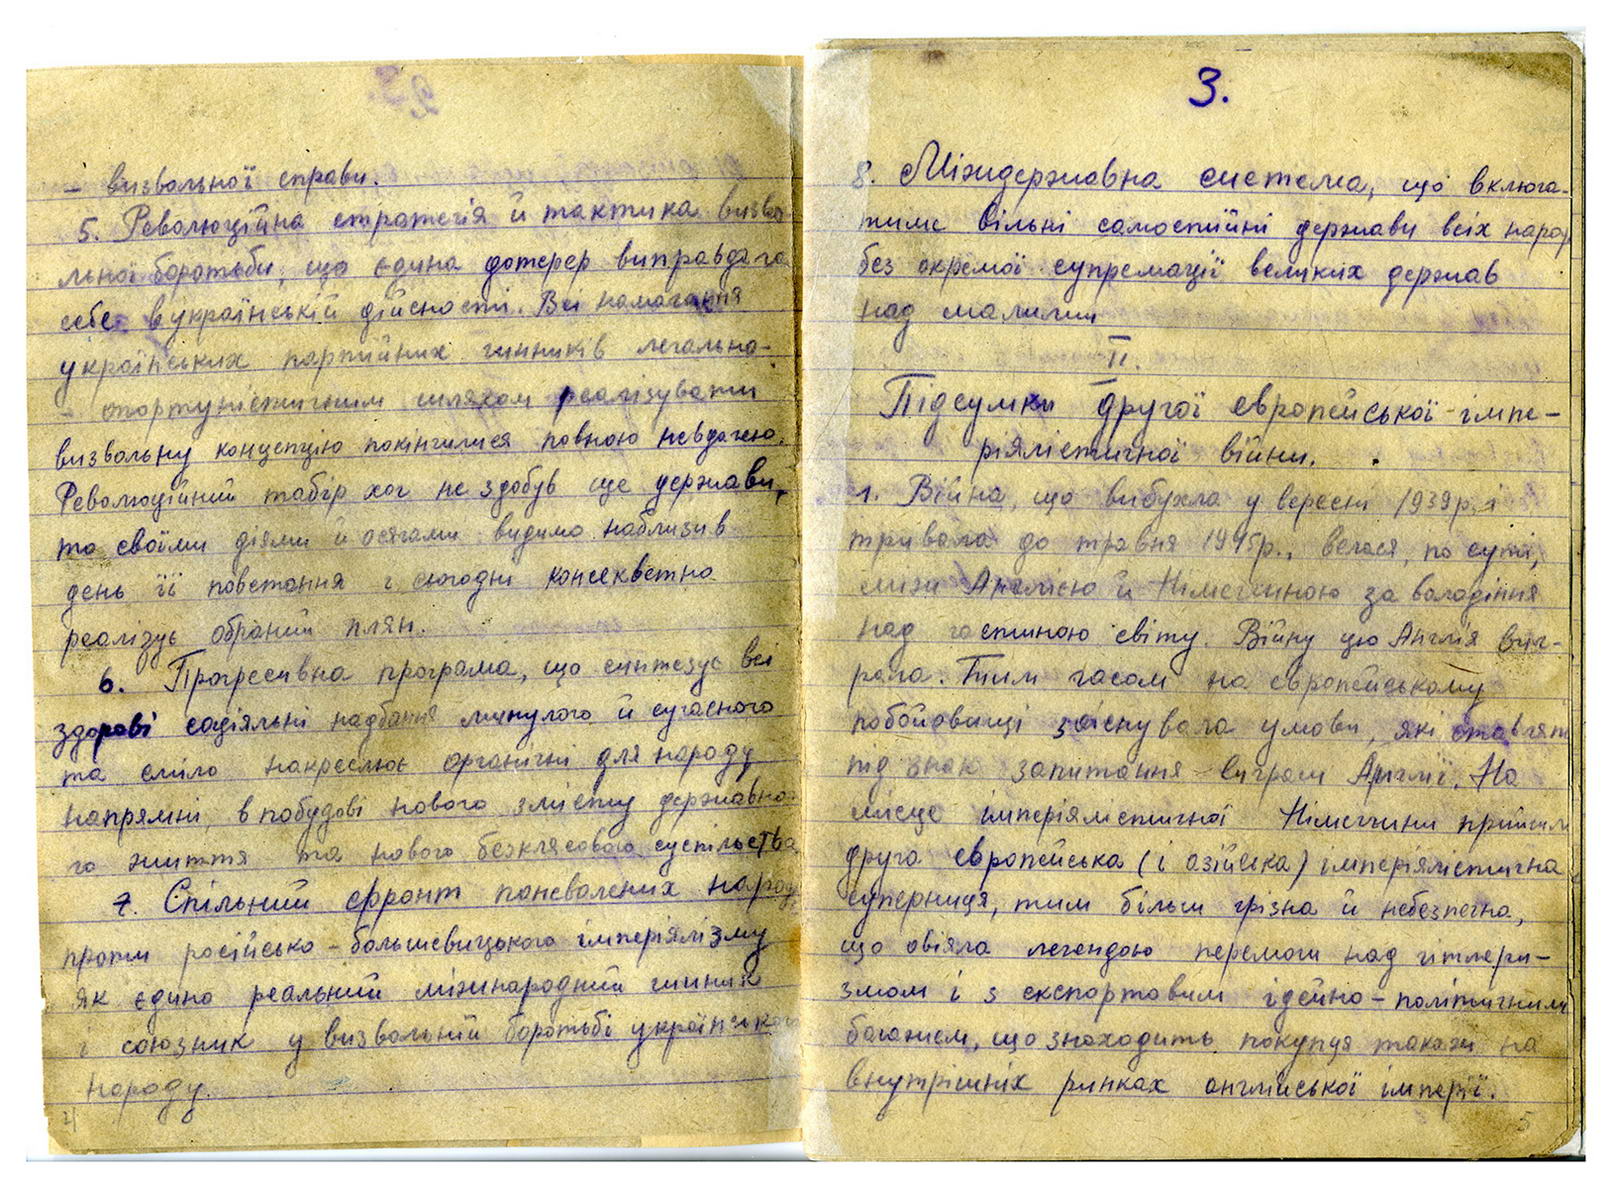 – визвольної справи.
5. Революційна стратегія й тактика визво
льної боротьби, що єдина дотепер виправдала
себе в українській дійсності. Всі намагання
українських партійних чинників легально-
– опортуністичним шляхом реалізувати
визвольну концепцію покінчилися повною невдачею.
Революційний табір хоч не здобув ще держави,
то своїми діями й осягами видимо наблизив
день її повстання і сьогодні консеквєтно
реалізує обраний плян.
6. Прогресивна програма, що синтезує всі
здорові соціяльні надбання минулого й сучасного
та сміло накреслює органічні для народу
напрямні, в побудові нового змісту державно-
го життя та нового безклясового суспільства
7. Спільний фронт поневолених народ
проти російсько – большевицького імперіялізму
як єдино реальний міжнародний чинник
і союзник у визвольній боротьбі українсько
народу.
4
3.
8. Міждержавна система, що включа-
тиме вільні самостійні держави всіх народ
без окремої супремації великих держав
над малими
II.
Підсумки другої європейської імпе-
ріялістичної війни.
1. Війна, що вибухла у вересні 1939р. і
тривала до травня 1945р., велася, по суті,
між Англією й Німеччиною за володіння
над частиною світу. Війну цю Англія виг-
рала. Тим часом на європейському
побойовищі заіснувала умови, які ставлять
під знак запитання виграш Англії. На
місце імперіялістичної Німеччини прийшла
друга європейська (і азійська) імперіялістична
суперниця, тим більш грізна й небезпечна,
що овіяла легендою перемоги над гітлери-
змом і з експортовим ідейно – політичним
багажем, що знаходить покупця також на
внутрішніх ринках англійської імперії.
5